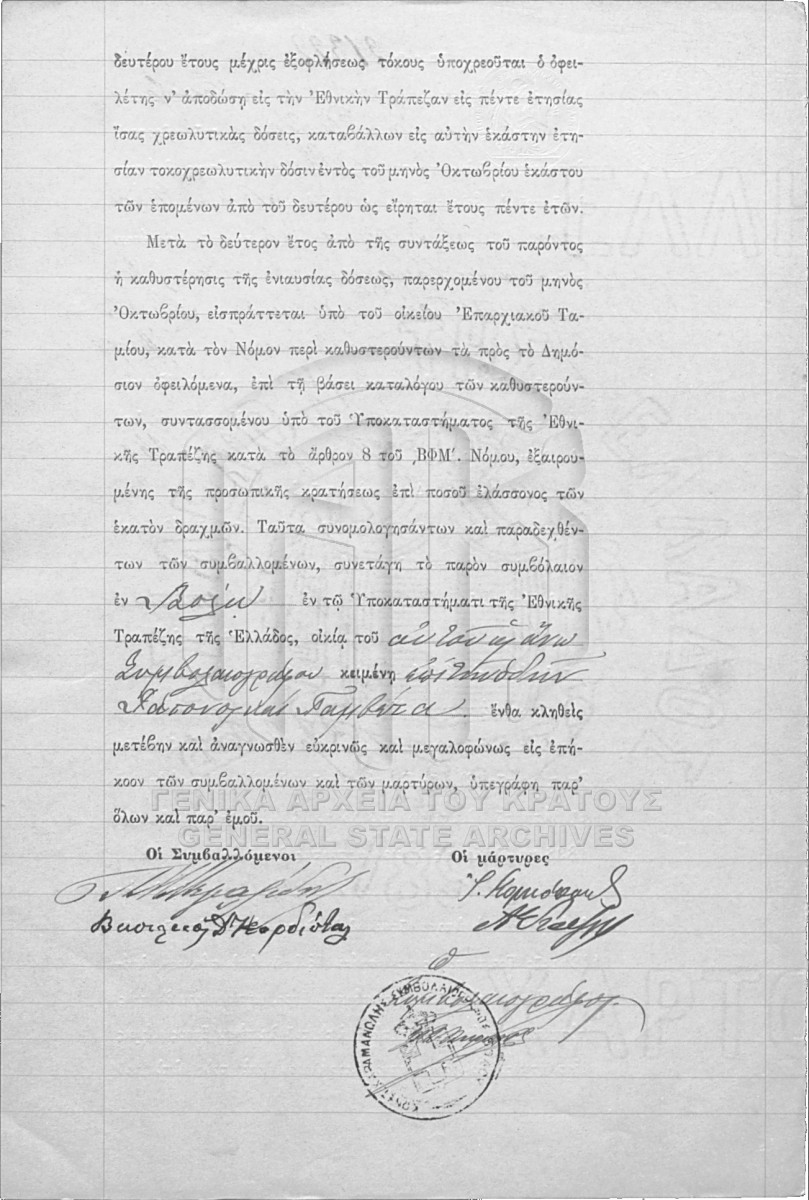 δευτέρου ἔτους μέχρις ἐξοφλήσεως τόκους ὑποχρεοῦται ὁ ὀφει-
λέτης ν' ἀποδώσῃ εἰς τὴν Ἐθνικὴν Τράπεζαν εἰς πέντε ἐτησίας
ἴσας χρεωλυτικὰς δόσεις, καταβάλλων εἰς αὐτὴν ἑκάστην ἐτη-
σίαν τοκοχρεωλυτικὴν δόσιν ἐντὸς τοῦ μηνὸς Ὀκτωβρίου ἑκάστου
τῶν ἑπομένων ἀπὸ τοῦ δευτέρου ὡς εἴρηται ἔτους πέντε ἐτῶν.
Μετὰ τὸ δεύτερον ἔτος ἀπὸ τῆς συντάξεως τοῦ παρόντος
ἡ καθυστέρησις τῆς ἐνιαυσίας δόσεως, παρερχομένου τοῦ μηνὸς
Ὀκτωβρίου, εἰσπράττεται ὑπὸ τοῦ οἰκείου Ἐπαρχιακοῦ Τα-
μίου, κατὰ τὸν Νόμον περὶ καθυστερούντων τὰ πρὸς τὸ Δημό-
σιον ὀφειλόμενα, ἐπὶ τῇ βάσει καταλόγου τῶν καθυστερούν-
των, συντασσομένου ὑπὸ τοῦ Ὑποκαταστήματος τῆς Ἐθνι-
κῆς Τραπέζης κατὰ τὸ ἄρθρον 8 τοῦ ͵ΒΦΜ΄. Νόμου, ἐξαιρου-
μένης τῆς προσωπικῆς κρατήσεως ἐπὶ ποσοῦ ἐλάσσονος τῶν
ἑκατὸν δραχμῶν. Ταῦτα συνομολογησάντων καὶ παραδεχθέν-
των τῶν συμβαλλομένων, συνετάγη τὸ παρὸν συμβόλαιον
ἐν Βόλῳ ἐν τῷ Ὑποκαταστήματι τῆς Ἐθνικῆς
Τραπέζης τῆς Ἑλλάδος, οἰκίᾳ τοῦ
Συμβολαιογράφου κειμένῃ
Ἰάσονος καὶ Γαμβέτα ἔνθα κληθεὶς
μετέβην καὶ ἀναγνωσθὲν εὐκρινῶς καὶ μεγαλοφώνως εἰς ἐπή-
κοον τῶν συμβαλλομένων καὶ τῶν μαρτύρων, ὑπεγράφη παρ'
ὅλων καὶ παρ' ἐμοῦ.
ΓΕΝΙΚΑ ΑΡΧΕΙΑ ΤΟΥ ΚΡΑΤΟΥΣ
GENERAL STATE ARCHIVES
Οἱ Συμβαλλόμενοι Οἱ μάρτυρες
Ὁ
Συμβολαιογράφος